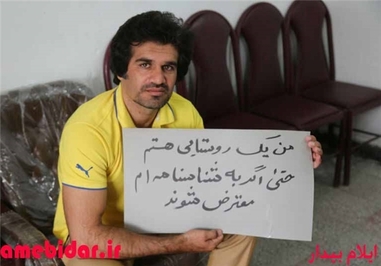 من یک روستایی هستم
حتی اگر به شناسنامه ام
معترض شوند
amebidar.ir
ایلام بیدار